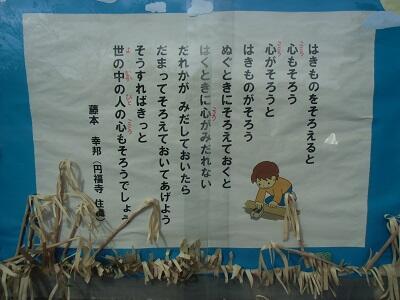 はきものをそろえると
心もそろう
心がそろうと
はきものがそろう
ぬぐときにそろえておくと
はくときに心がみだれない
だれかが みだしておいたら
だまってそろえておいてあげよう
そうすればきっと
世の中の人の心もそろうでしょう
藤本 幸邦（円福寺 住職）